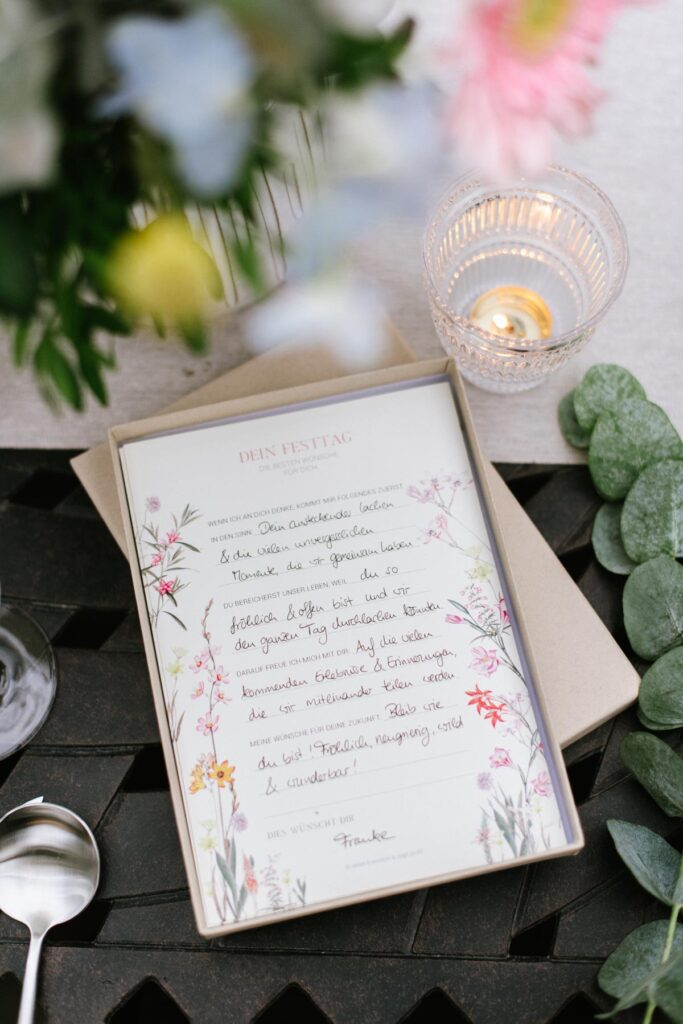 DEIN FESTTAG
DIE BESTEN WÜNSCHE
FÜR DICH.
WENN ICH AN DICH DENKE, KOMMT MIR FOLGENDES ZUERST
IN DEN SINN: Dein ansteckender Lachen
& die vielen unvergesslichen
Momente, die wir gemeinsam haben
DU BEREICHERST UNSER LEBEN, WEIL du so
fröhlich & offen bist und wir
den ganzen Tag durchlachen könnten.
DARAUF FREUE ICH MICH MIT DIR: Auf die vielen
kommenden Erlebnisse & Erinnerungen,
die wir miteinander teilen werden
MEINE WÜNSCHE FÜR DEINE ZUKUNFT: Bleib wie
du bist! Fröhlich, neugierig, wild
& wunderbar!
DIES WÜNSCHT DIR
Franke